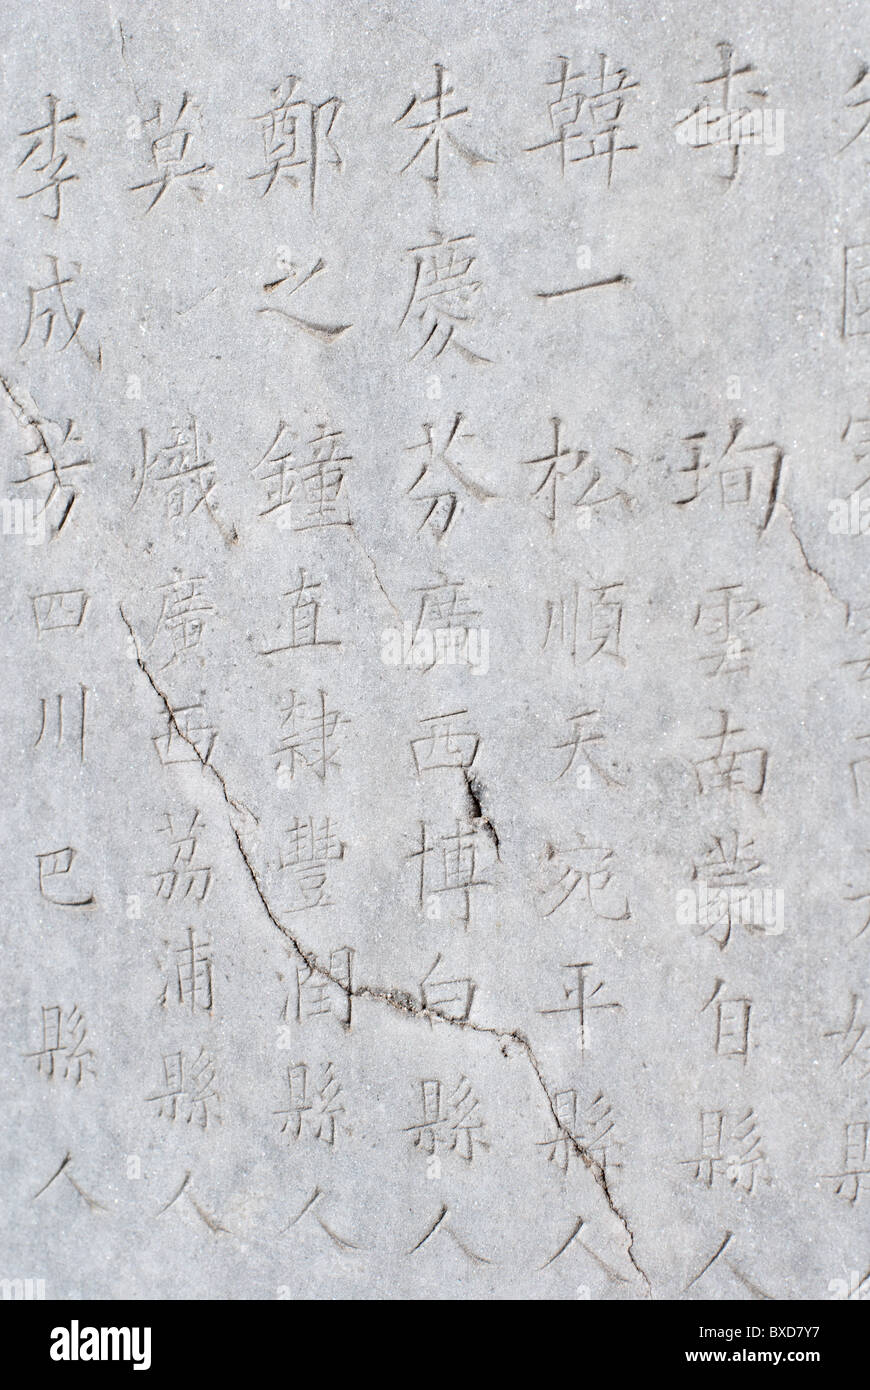 李珣雲南蒙自縣人
韓一松順天宛平縣人
朱慶芬廣西博白縣人
鄭之鐘直隸豐潤縣人
莫熾廣西荔浦縣人
李成芳四川巴縣人
alamy
Image ID: BXD7Y7
www.alamy.com